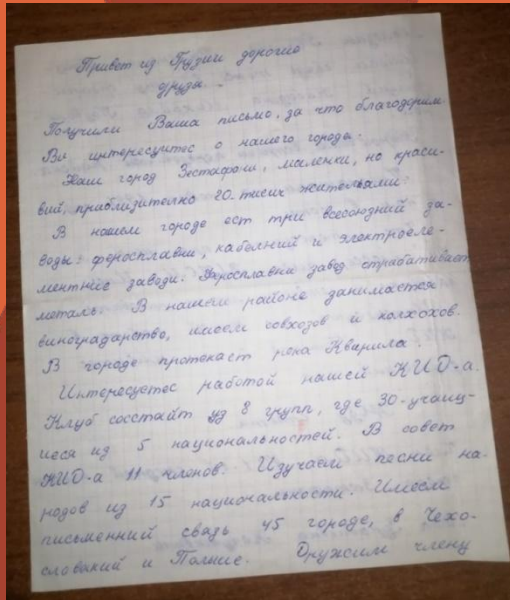 Привет из Грузии дорогие
друзя.
Получили Ваша письмо, за что благодорим
Ви интересуитес о нашего городы.
Наш город Зестафони, маленки, но краси-
вий, приблизително 20-тисич жительами.
В нашем городе ест три всесоюзний за-
воды: феросплавни, кабелний и электроеле-
ментние заводи. Феросплавни завод отрабативает
металь. В нашем районе данимается
виноградарство, имеем совхозов и колхохов.
В городе протекаст река Квирила.
Интересуетес работой нашей КИД-а.
Клуб состаит из 8 групп, где 30-учащ-
иеся из 5 националностей. В совет
КИД-а 11 членов. Изучаем песни на-
родов из 15 националности. Имеем
письменний связь 45 городе, в Чехо-
словакий и Полшие. Дружим члену